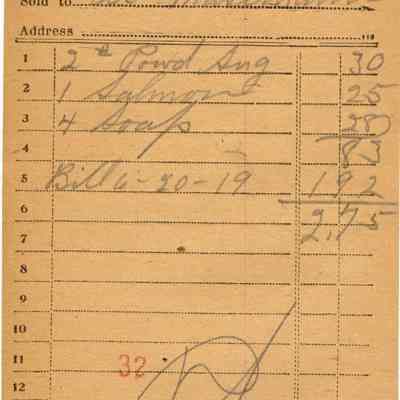 Sold to
Address
1 2 # Powd Sug 30
2 1 Salmon 25
3 4 Soap 28
4 83
5 Bill 6-20-19 192
6 2,75
7
8
9
10
11 32
12